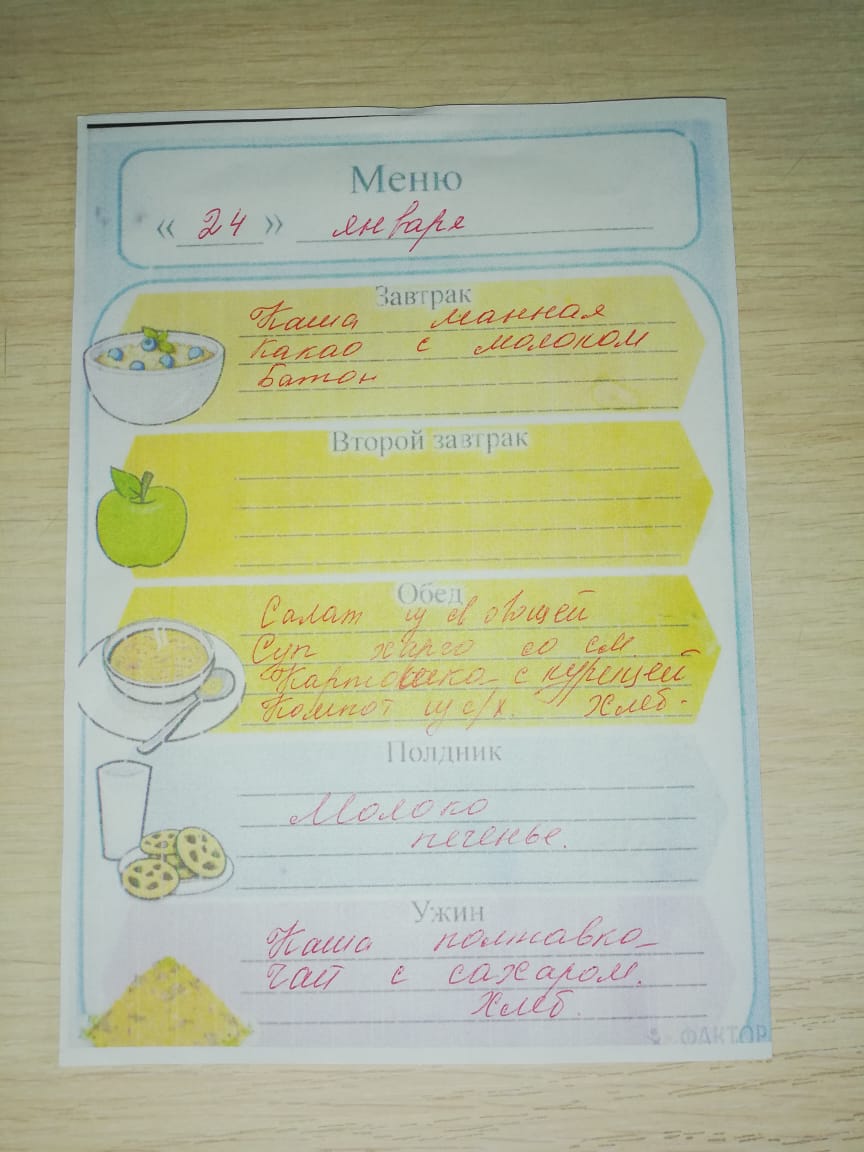 Меню
«24» января
Завтрак
Каша манная
Какао с молоком
Батон
Второй завтрак
Обед
Салат из св овощей
Суп харчо со см.
Картошка с курицей
Компот из с/х. Хлеб.
Полдник
Молоко
печенье.
Ужин
Каша полтавка
Чай с сахаром.
Хлеб.
ФАКТОР